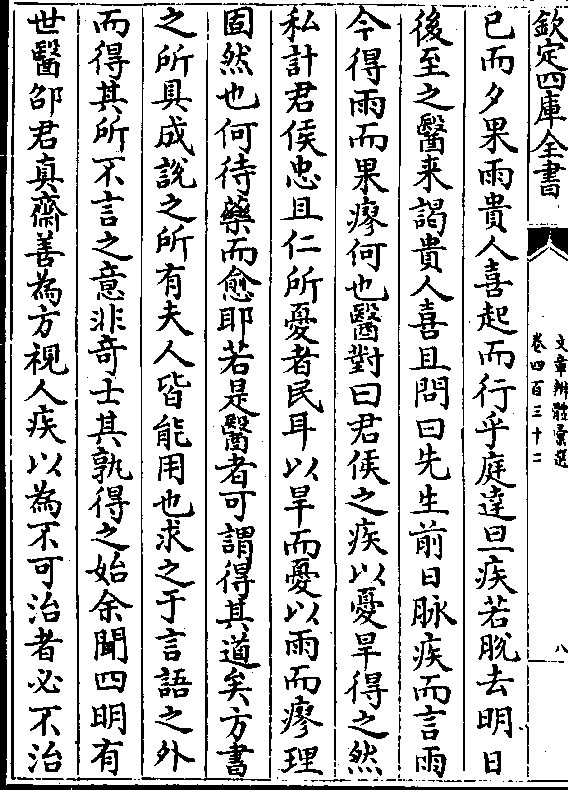 欽定四庫全書
文章辨體彙選
卷四百三十二
八
已而夕果雨貴人喜起而行乎庭達旦疾若脫去明日
後至之醫来謁貴人喜且問曰先生前日脉疾而言雨
今得雨而果瘳何也醫對曰君侯之疾以憂旱得之然
私計君侯忠且仁所憂者民耳以旱而憂以雨而瘳理
固然也何待藥而愈耶若是醫者可謂得其道矣方書
之所具成說之所有夫人皆能用也求之于言語之外
而得其所不言之意非奇士其孰得之始余聞四明有
世醫邵君真齋善為方視人疾以為不可治者必不治